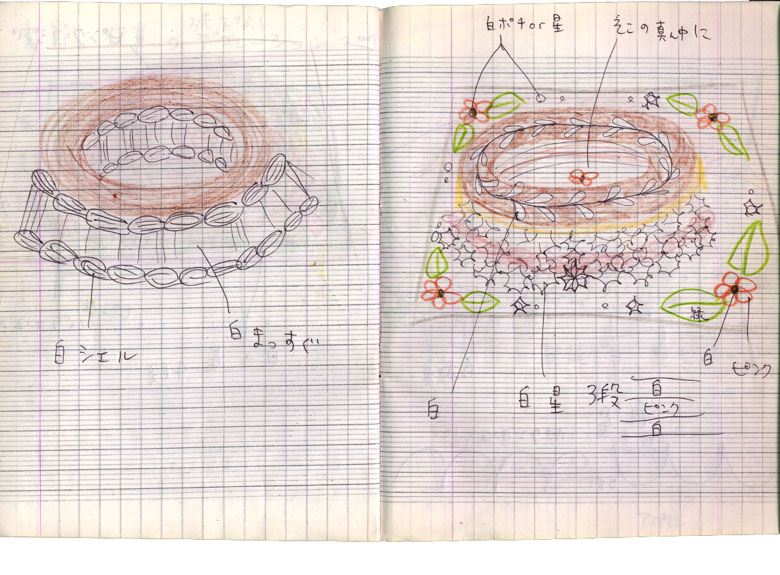 白 シェル
白 まっすぐ
白ポチor星
そこの真ん中に
緑
白
ピンク
白
白 星 3段
白
ピンク
白